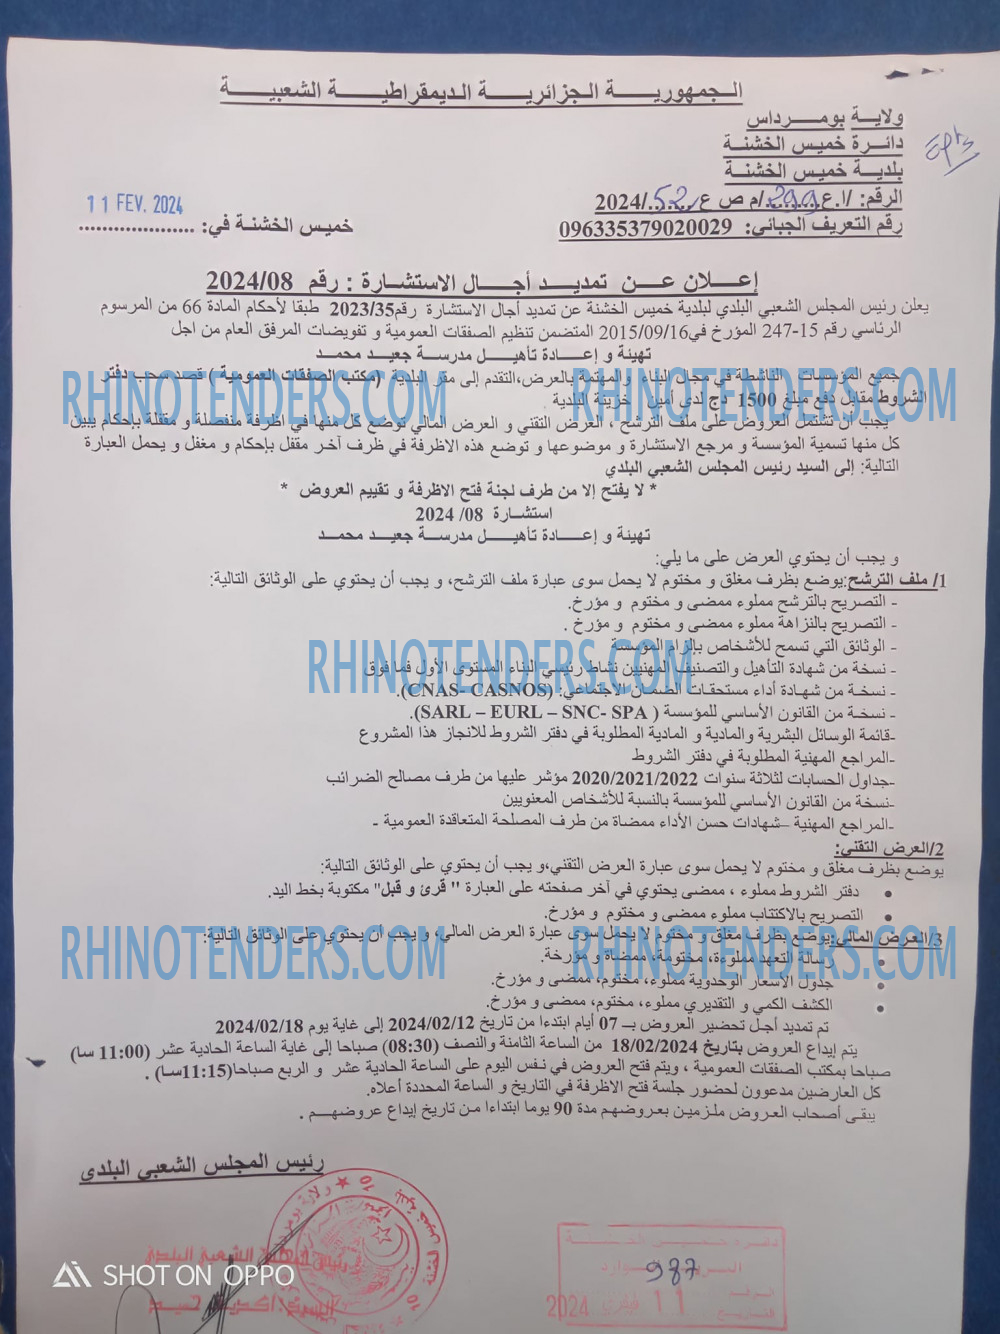 الـجمهوريـــة الـجزائريـــة الـديمقراطيـــة الشعبيـــة
ولايـــة بومـــرداس
دائـــرة خميس الخشنـة
بلديـــة خميس الخشنـة
الرقم: /ا.ع/299/م ص ع/52/2024
رقم التعريف الجبائي: 096335379020029
خميس الخشنة في: ....................
11 FEV. 2024
إعـــلان عـــن تمديـــد أجـــال الاستشـــارة : رقم 2024/08
يعلن رئيس المجلس الشعبي البلدي لبلدية خميس الخشنة عن تمديد أجال الاستشارة رقم 2023/35 طبقا لأحكام المادة 66 من المرسوم
الرئاسي رقم 15-247 المؤرخ في 2015/09/16 المتضمن تنظيم الصفقات العمومية و تفويضات المرفق العام من اجل
تهيئة و إعـــادة تأهيـــل مدرســـة جعيـــد محمـــد
جميع المؤسسات الناشطة في مجال البناء والمهتمة بالعرض،التقدم إلى مقر البلدية (مكتب الصفقات العمومية ) قصد سحب دفتر
الشروط مقابل دفع مبلغ 1500 دج لدى أمين خزينة البلدية
يجب أن تشتمل العروض على ملف الترشح ، العرض التقني و العرض المالي توضع كل منها في اظرفة منفصلة و مقفلة بإحكام يبين
كل منها تسمية المؤسسة و مرجع الاستشارة و موضوعها و توضع هذه الاظرفة في ظرف آخر مقفل بإحكام و مغفل و يحمل العبارة
التالية: إلى السيد رئيس المجلس الشعبي البلدي
* لا يفتح إلا من طرف لجنة فتح الاظرفة و تقييم العروض *
استشـــارة 08/ 2024
تهيئة و إعـــادة تأهيـــل مدرســـة جعيـــد محمـــد
و يجب أن يحتوي العرض على ما يلي:
1/ ملف الترشح:يوضع بظرف مغلق و مختوم لا يحمل سوى عبارة ملف الترشح، و يجب أن يحتوي على الوثائق التالية:
- التصريح بالترشح مملوء ممضى و مختوم و مؤرخ.
- التصريح بالنزاهة مملوء ممضى و مختوم و مؤرخ .
- الوثائق التي تسمح للأشخاص بإلزام المؤسسة
- نسخة من شهادة التأهيل والتصنيف المهنيين نشاط رئيسي البناء المستوى الأول فما فوق
- نسخـة من شهـادة أداء مستحقـات الضمـان الاجتماعي: (CNAS- CASNOS).
- نسخـة من القانون الأساسي للمؤسسة ( SARL – EURL – SNC- SPA).
-قائمة الوسائل البشرية والمادية و المادية المطلوبة في دفتر الشروط للانجاز هذا المشروع
-المراجع المهنية المطلوبة في دفتر الشروط
-جداول الحسابات لثلاثة سنوات 2020/2021/2022 مؤشر عليها من طرف مصالح الضرائب
-نسخة من القانون الأساسي للمؤسسة بالنسبة للأشخاص المعنويين
-المراجع المهنية –شهادات حسن الأداء ممضاة من طرف المصلحة المتعاقدة العمومية ـ
2/العرض التقني:
يوضع بظرف مغلق و مختوم لا يحمل سوى عبارة العرض التقني،و يجب أن يحتوي على الوثائق التالية:
• دفتر الشروط مملوء ، ممضى يحتوي في آخر صفحته على العبارة " قرئ و قبل" مكتوبة بخط اليد.
• التصريح بالاكتتاب مملوء ممضى و مختوم و مؤرخ.
3/العرض المالي:يوضع بظرف مغلق و مختوم لا يحمل سوى عبارة العرض المالي، و يجب أن يحتوي على الوثائق التالية:
• رسالة التعهد مملوءة، مختومة، ممضاة و مؤرخة.
• جدول الأسعار الوحدوية مملوء، مختوم، ممضى و مؤرخ.
• الكشف الكمي و التقديري مملوء، مختوم، ممضى و مؤرخ.
تم تمديد أجـل تحضير العروض بـــ 07 أيام ابتدءا من تاريخ 2024/02/12 إلى غاية يوم 2024/02/18
يتم إيداع العروض بتاريخ 18/02/2024 من الساعة الثامنة والنصف (08:30) صباحا إلى غاية الساعة الحادية عشر (11:00 سا)
صباحا بمكتب الصفقات العمومية ، ويتم فتح العروض في نـفس اليوم على الساعة الحادية عشر و الربع صباحا(11:15سا) .
كل العارضين مدعوون لحضور جلسة فتح الاظرفة في التاريخ و الساعة المحددة أعلاه.
يبقى أصحاب العروض ملـزميـن بعروضهم مدة 90 يوما ابتداءا من تاريخ إيداع عروضهـــم .
رئيس المجلس الشعبي البلدي
رئيس المجلس الشعبي البلدي
دائـرة خميس الخشنـة
987
الرقم
11 فيفري 2024
RHINOTENDERS.COM
RHINOTENDERS.COM
RHINOTENDERS.COM
RHINOTENDERS.COM
RHINOTENDERS.COM
SHOT ON OPPO